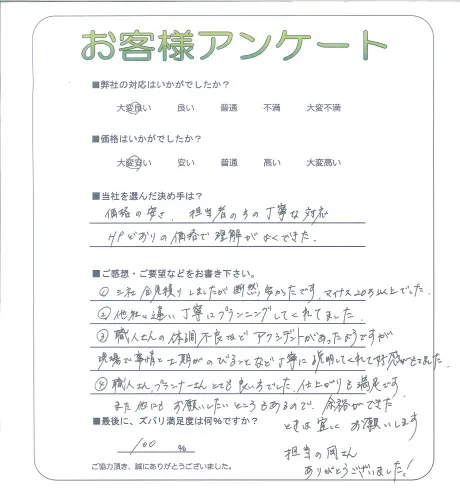 お客様アンケート
■弊社の対応はいかがでしたか？
大変良い 良い 普通 不満 大変不満
■価格はいかがでしたか？
大変安い 安い 普通 高い 大変高い
■当社を選んだ決め手は？
価格の安さ、担当者の方の丁寧な対応
HPどおりの価格で理解がよくできた。
■ご感想・ご要望などをお書き下さい。
① 三社 見積りしましたが断然、安かったです。マイナス20万以上でした。
② 他社と違い丁寧にプランニングしてくれてました。
③ 職人さんの体調不良など アクシデントがあったようですが
現場で事情と工期がのびることなど丁寧に説明してくれて対応がもてました。
④ 職人さん、プランナーさん とても良い方でした。仕上がりも満足です
また 他にも お願いしたいところもあるので、余裕ができた
ときは宜しく お願いします
■最後に、ズバリ満足度は何%ですか？
100 %
担当の岡さん
ありがとうございました！
ご協力頂き、誠にありがとうございました。